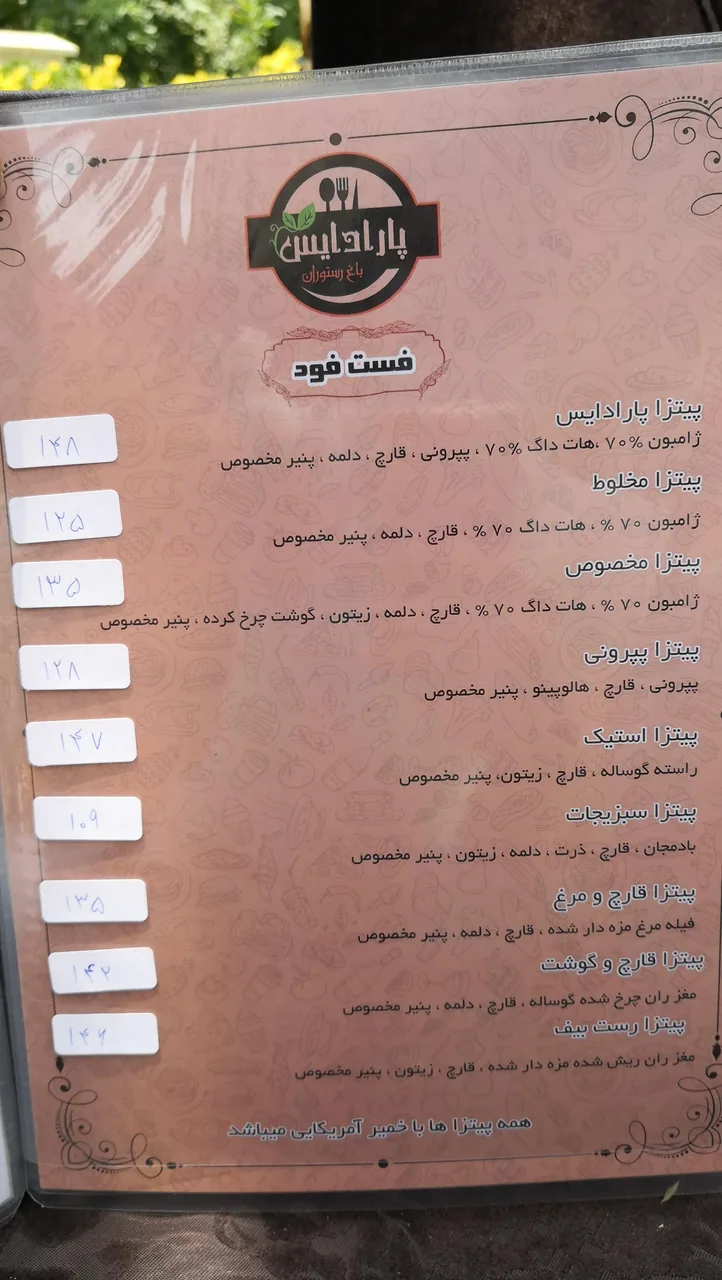 پارادایس
باغ رستوران
فست فود
پیتزا پارادایس
ژامبون ۷۰% ،هات داگ ۷۰% ، پپرونی ، قارچ ، دلمه ، پنیر مخصوص
۱۴۸
پیتزا مخلوط
ژامبون ۷۰ % ، هات داگ ۷۰ % ، قارچ ، دلمه ، پنیر مخصوص
۱۲۵
پیتزا مخصوص
ژامبون ۷۰ % ، هات داگ ۷۰ % ، قارچ ، دلمه ، زیتون ، گوشت چرخ کرده ، پنیر مخصوص
۱۳۵
پیتزا پپرونی
پپرونی ، قارچ ، هالوپینو ، پنیر مخصوص
۱۲۸
پیتزا استیک
راسته گوساله ، قارچ ، زیتون، پنیر مخصوص
۱۴۷
پیتزا سبزیجات
بادمجان ، قارچ ، ذرت ، دلمه ، زیتون ، پنیر مخصوص
۱۰۹
پیتزا قارچ و مرغ
فیله مرغ مزه دار شده ، قارچ ، دلمه ، پنیر مخصوص
۱۳۵
پیتزا قارچ و گوشت
مغز ران چرخ شده گوساله ، قارچ ، دلمه ، پنیر مخصوص
۱۴۲
پیتزا رست بیف
مغز ران ریش شده مزه دار شده ، قارچ ، زیتون ، پنیر مخصوص
۱۴۶
همه پیتزا ها با خمیر آمریکایی میباشد